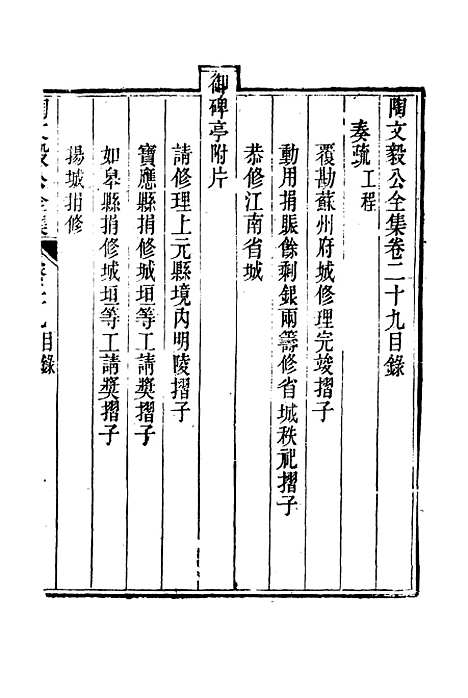 陶文毅公全集卷二十九目錄
奏疏工程
覆勘蘇州府城修理完竣摺子
動用捐賑餘剩銀兩籌修省城秩祀摺子
恭修江南省城
御碑亭附片
請修理上元縣境內明陵摺子
寶應縣捐修城垣等工請獎摺子
如皋縣捐修城垣等工請獎摺子
揚城捐修
陶文毅公全集 卷二十九目錄